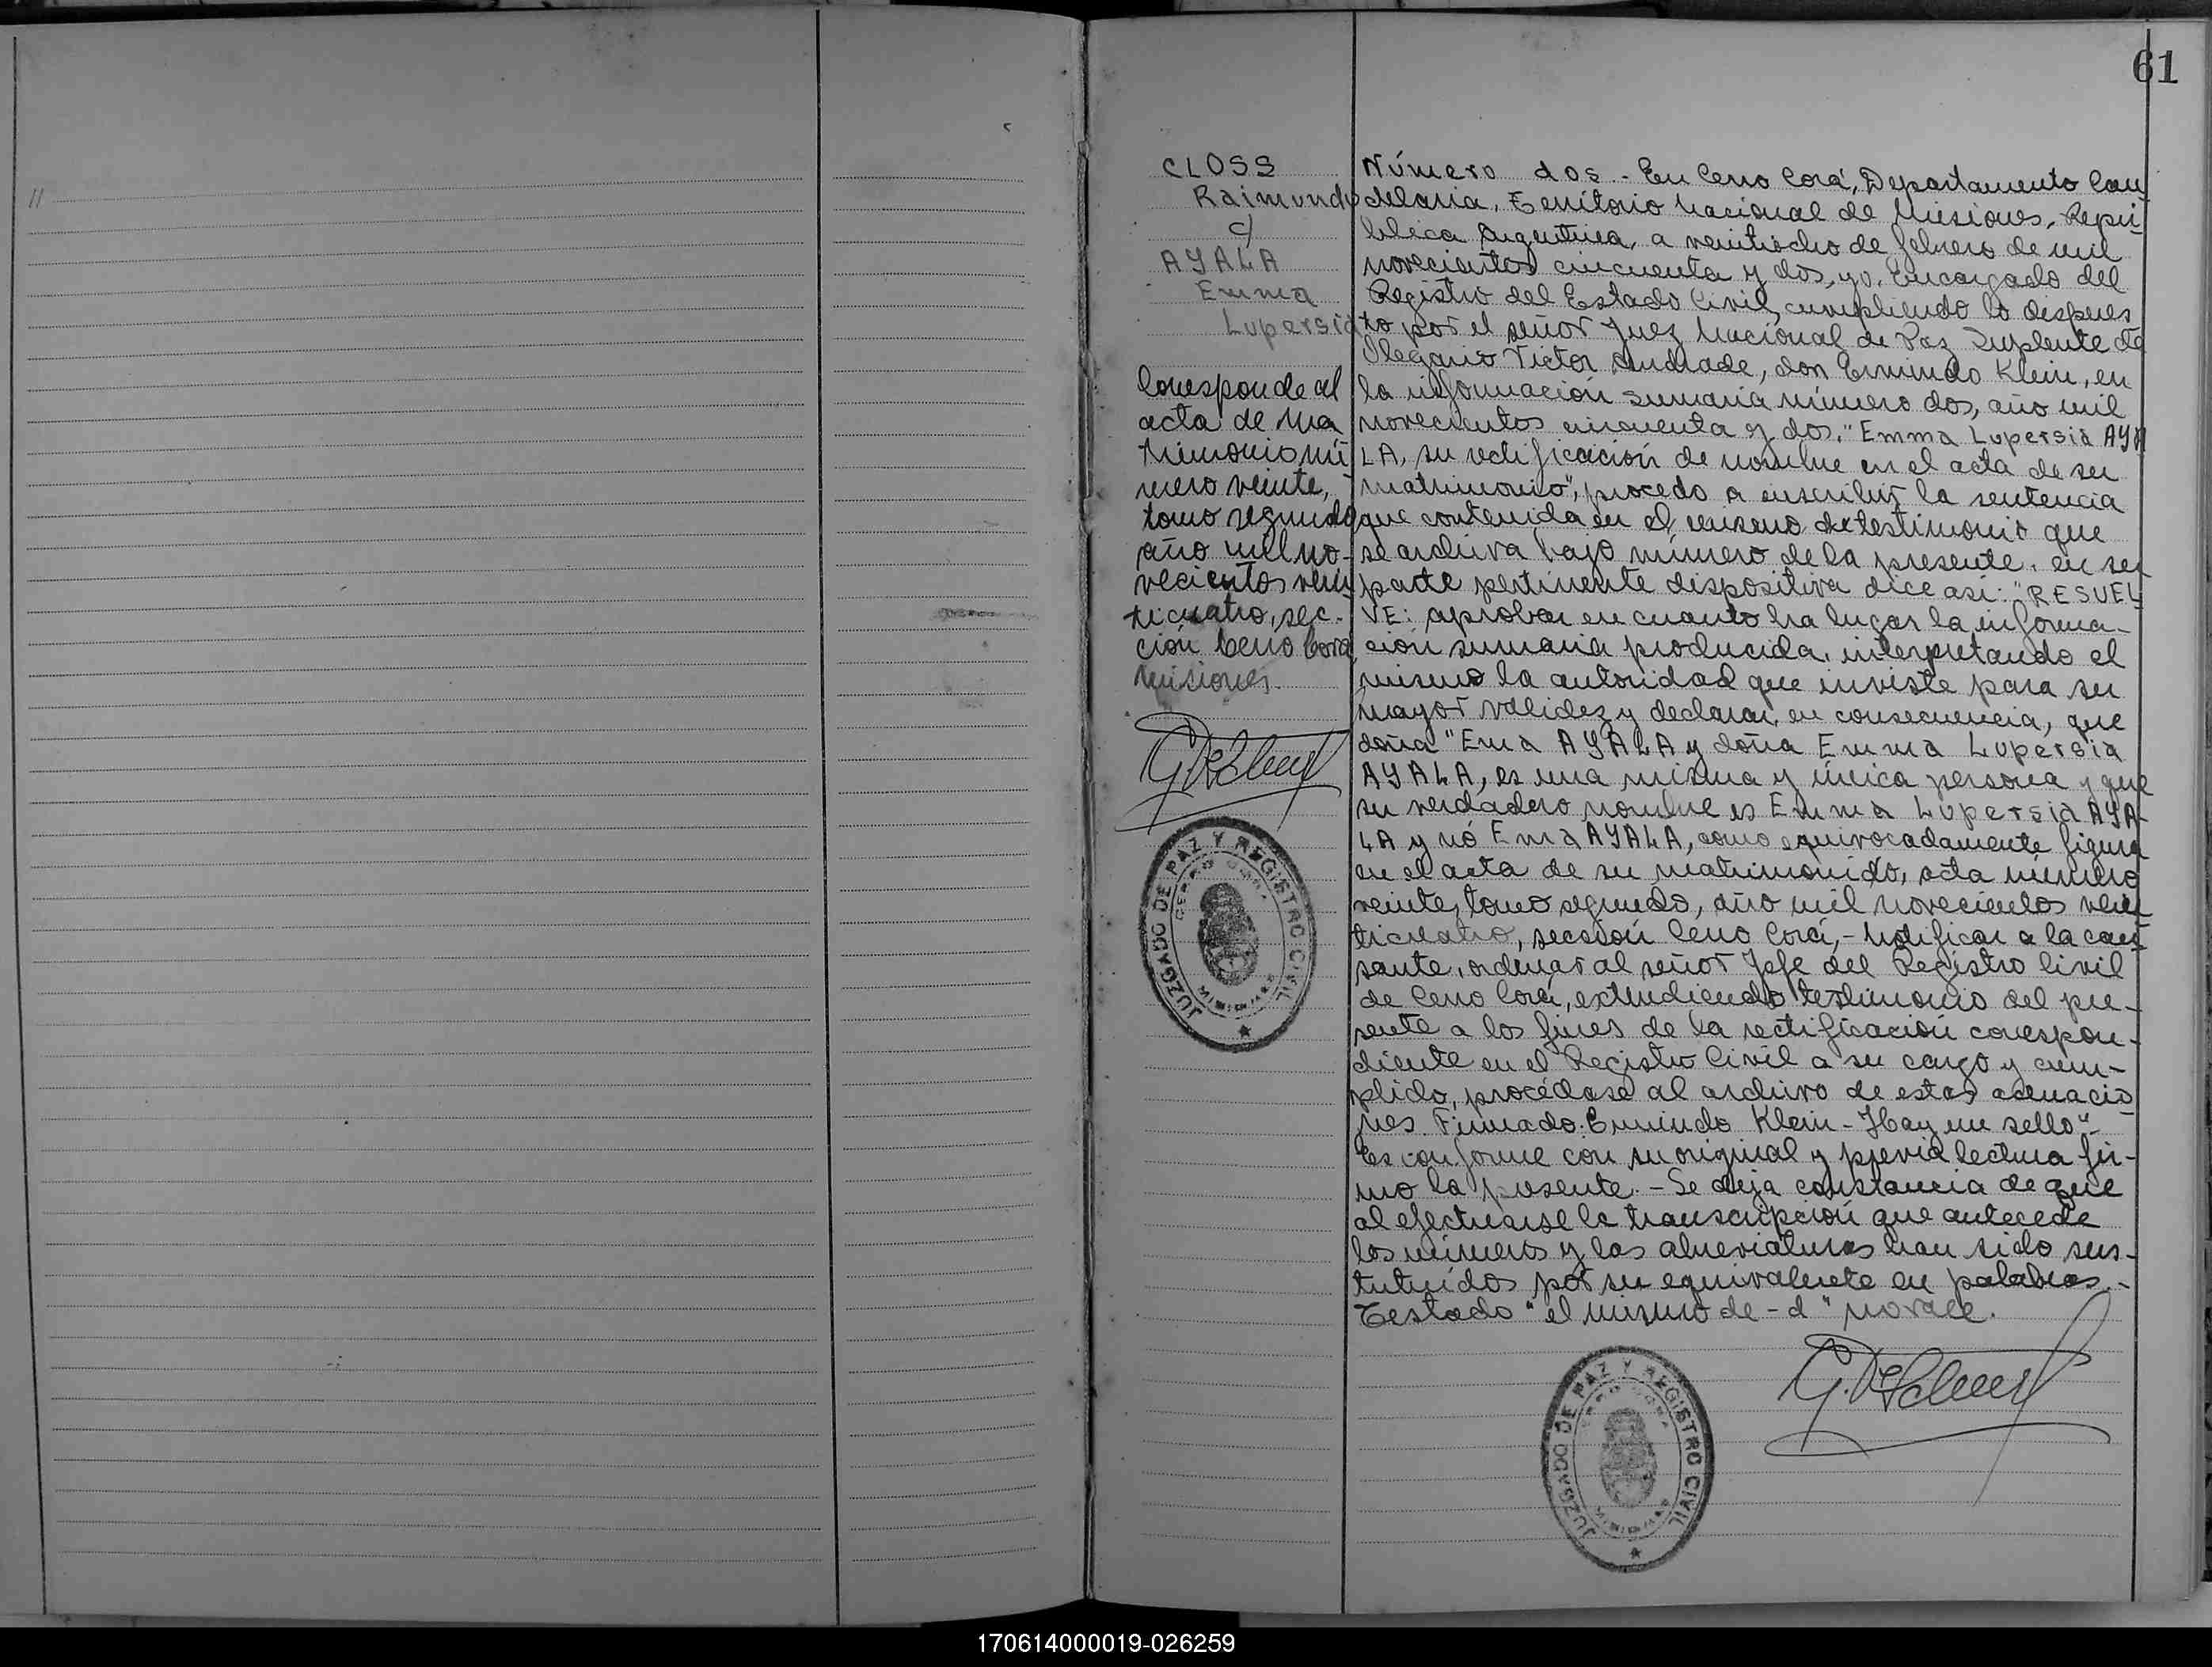 61
CLOSS
Raimundo
c/
AYALA
Emma
Lupersia
Corresponde al
acta de ma
trimonio nú
mero veinte,
tomo segundo
año mil no-
vecientos vein
ticuatro, sec-
ción Cerro Corá,
Misiones.
JUZGADO DE PAZ Y REGISTRO CIVIL
CERRO CORA
MISIONES
Número dos - En Cerro Corá, Departamento Can
delaria, Territorio Nacional de Misiones, Repú-
blica Argentina, a veintiocho de febrero de mil
novecientos cincuenta y dos, yo, Encargado del
Registro del Estado Civil, cumpliendo lo dispues
to por el señor Juez Nacional de Paz Suplente de
Olegario Victor Andrade, don Ermindo Klein, en
la información sumaria número dos, año mil
novecientos cincuenta y dos, "Emma Lupersia AYA
LA, su rectificación de nombre en el acta de su
matrimonio", procedo a inscribir la sentencia
que contenida en el mismo de testimonio que
se archiva bajo número de la presente, en su
parte pertinente dispositiva dice así: "RESUEL
VE: aprobar en cuanto ha lugar la informa-
ción sumaria producida, interpretando el
mismo la autoridad que inviste para su
mayor validez y declarar, en consecuencia, que
doña "Ema AYALA y doña Emma Lupersia
AYALA, es una misma y única persona y que
su verdadero nombre es Emma Lupersia AYA-
LA y nó Ema AYALA, como equivocadamente figura
en el acta de su matrimonio, acta número
veinte, tomo segundo, año mil novecientos vein
ticuatro, sección Cerro Corá, - Notificar a la cau
sante, ordenar al señor Jefe del Registro Civil
de Cerro Corá, extendiendo testimonio del pre-
sente a los fines de la rectificación correspon-
diente en el Registro Civil a su cargo y cum-
plido, procédase al archivo de estas actuacio
nes. Firmado: Ermindo Klein - Hay un sello".-
Es conforme con su original y previa lectura fir-
mo la presente. - Se deja constancia de que
al efectuarse la transcripción que antecede
los números y las abreviaturas han sido sus-
tutuídos por su equivalente en palabras.-
Testado "el mismo de - d" no vale.
JUZGADO DE PAZ Y REGISTRO CIVIL
CERRO CORA
MISIONES
170614000019-026259